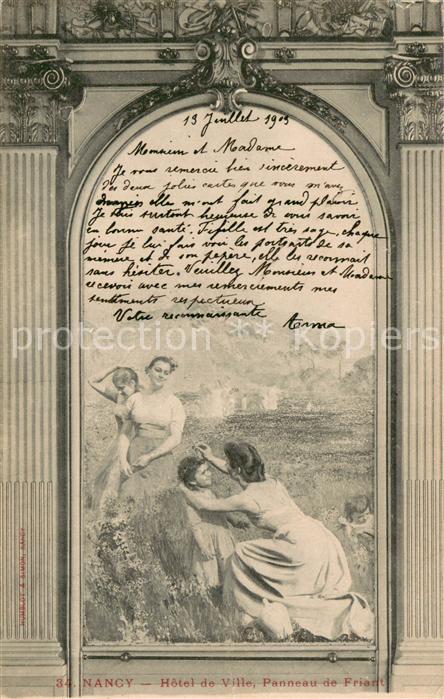 13 Juillet 1903
Monsieur et Madame
Je vous remercie bien sincèrement
des deux jolies cartes que vous m'avez
elles m'ont fait grand plaisir
Je suis surtout heureuse de vous savoir
en bonne santé. Fifille est très sage, chaque
jour je lui fais voir les portraits de sa
mémère et de son pépère, elle les reconnait
sans hésiter. Veuillez Monsieur et Madame
recevoir avec mes remerciements mes
sentiments respectueux
Votre reconnaissante
Anna
protection ** Kopiers
HUMBLOT & SIMON, NANCY
34. NANCY — Hôtel de Ville, Panneau de Friant